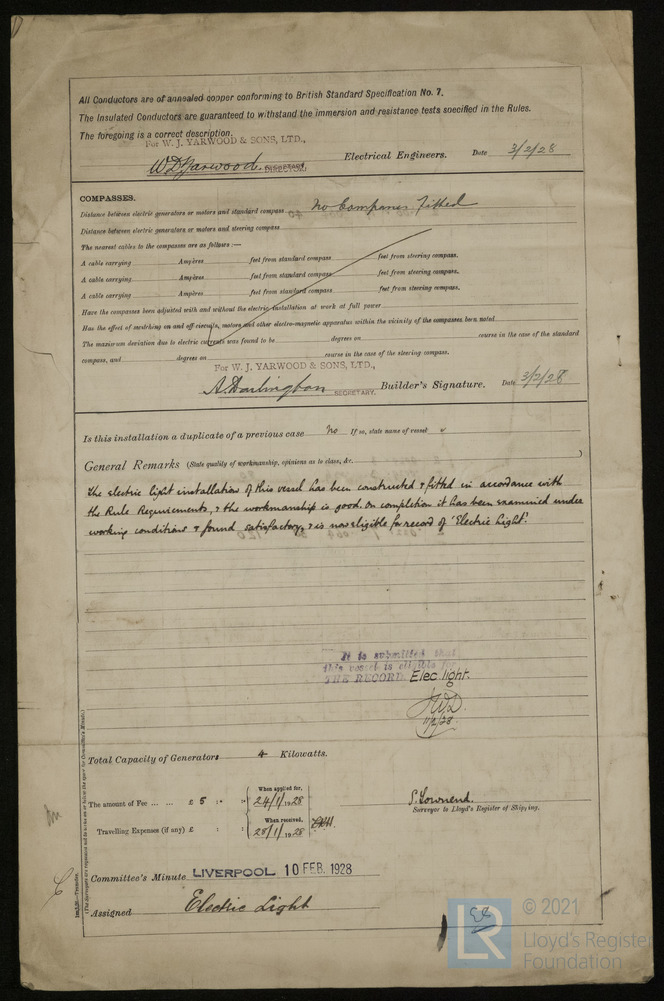 All Conductors are of annealed copper conforming to British Standard Specification No. 7.
The Insulated Conductors are guaranteed to withstand the immersion and resistance tests specified in the Rules.
The foregoing is a correct description.
For W. J. YARWOOD & SONS, LTD.,
W D Yarwood. DIRECTOR Electrical Engineers. Date 3/2/28
COMPASSES.
Distance between electric generators or motors and standard compass No Compasses Fitted
Distance between electric generators or motors and steering compass
The nearest cables to the compasses are as follows :—
A cable carrying Ampères feet from standard compass feet from steering compass.
A cable carrying Ampères feet from standard compass feet from steering compass.
A cable carrying Ampères feet from standard compass feet from steering compass.
Have the compasses been adjusted with and without the electric installation at work at full power
Has the effect of switching on and off circuits, motors and other electro-magnetic apparatus within the vicinity of the compasses been noted
The maximum deviation due to electric currents was found to be degrees on course in the case of the standard
compass, and degrees on course in the case of the steering compass.
For W. J. YARWOOD & SONS, LTD.,
A. Darlington SECRETARY. Builder's Signature. Date 3/2/28
Is this installation a duplicate of a previous case No If so, state name of vessel
General Remarks (State quality of workmanship, opinions as to class, &c.
The electric light installation of this vessel has been constructed & fitted in accordance with
the Rule Requirements, & the workmanship is good. On completion it has been examined under
working conditions & found satisfactory, & is now eligible for record of 'Electric Light'.
It is submitted that
this vessel is eligible for
THE RECORD. Elec. light.
11/2/28
Total Capacity of Generators 4 Kilowatts.
The amount of Fee ... ... £ 5 : - : - When applied for, 24/1/1928
S. Townend.
Surveyor to Lloyd's Register of Shipping.
Travelling Expenses (if any) £ : : When received, 28/1/1928
Committee's Minute LIVERPOOL 10 FEB. 1928
Assigned Electric Light
LR © 2021
Lloyd's Register
Foundation